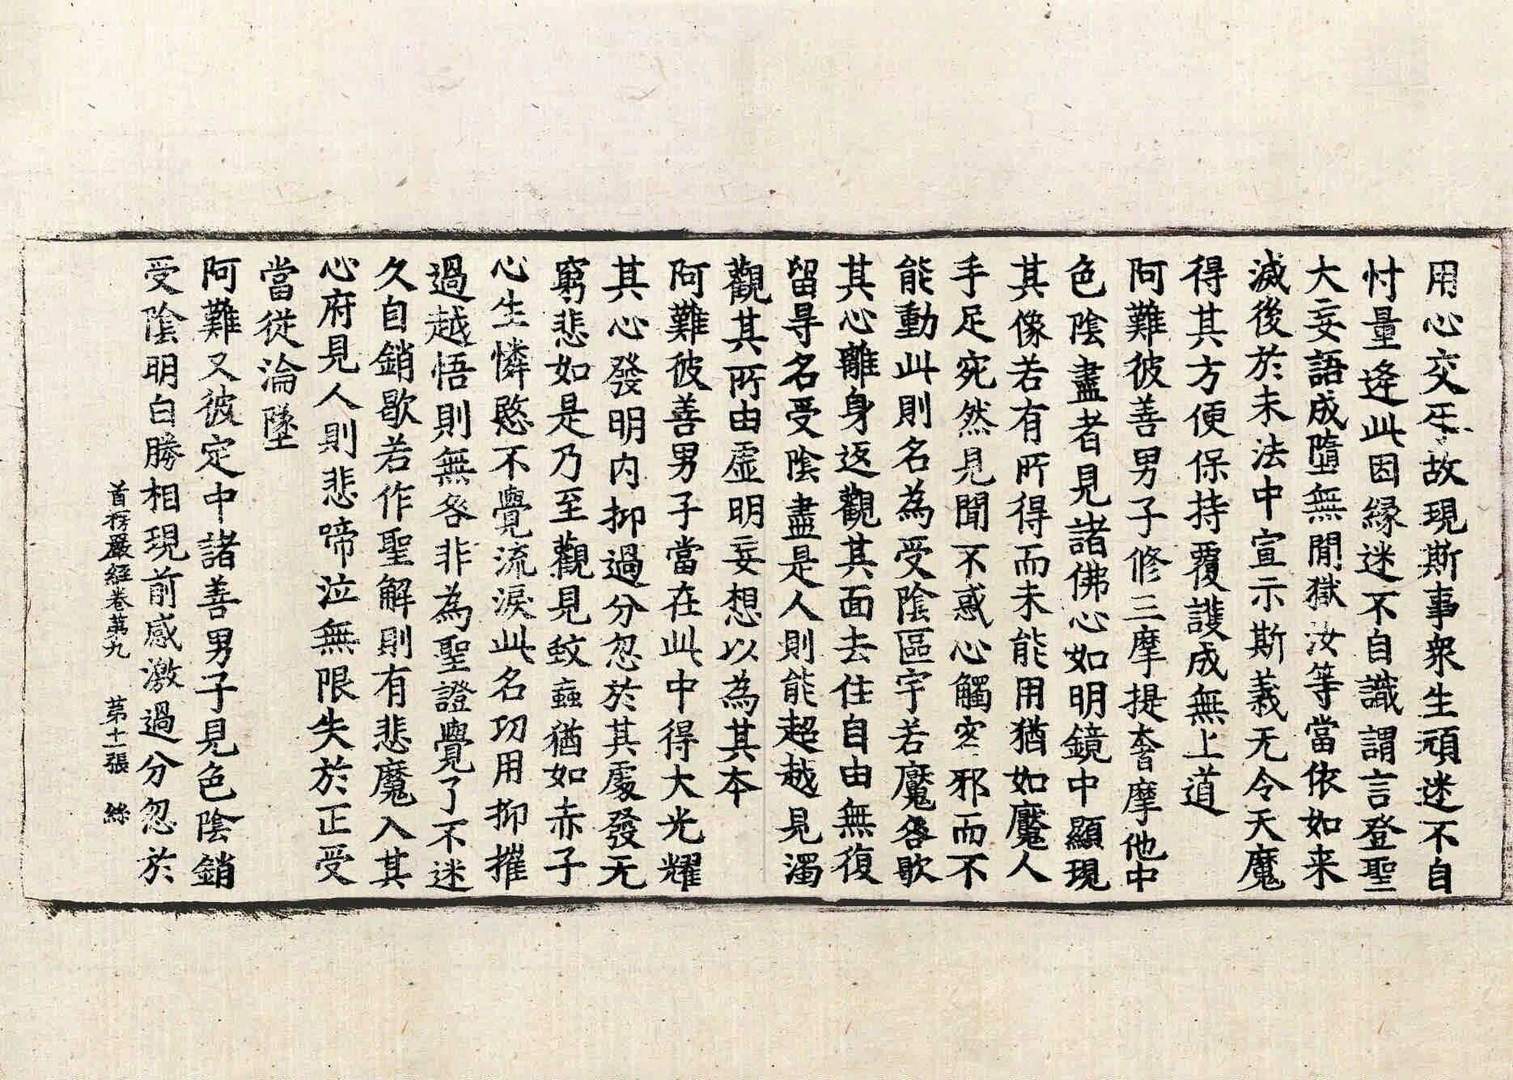 用心交互故現斯事衆生頑迷不自
忖量逢此因縁迷不自識謂言登聖
大妄語成墮無間獄汝等當依如来
滅後於末法中宣示斯義无令天魔
得其方便保持覆護成無上道
阿難彼善男子修三摩提奢摩他中
色陰盡者見諸佛心如明鏡中顯現
其像若有所得而未能用猶如魘人
手足宛然見聞不惑心觸客邪而不
能動此則名為受陰區宇若魘咎歇
其心離身返觀其面去住自由無復
留㝵名受陰盡是人則能超越見濁
觀其所由虛明妄想以為其本
阿難彼善男子當在此中得大光耀
其心發明内抑過分忽於其處發无
窮悲如是乃至觀見蚊蝱猶如赤子
心生憐愍不覺流淚此名功用抑摧
過越悟則無咎非為聖證覺了不迷
久自銷歇若作聖解則有悲魔入其
心府見人則悲啼泣無限失於正受
當從淪墜
阿難又彼定中諸善男子見色陰銷
受陰明白勝相現前感激過分忽於
首楞嚴經卷第九 第十張